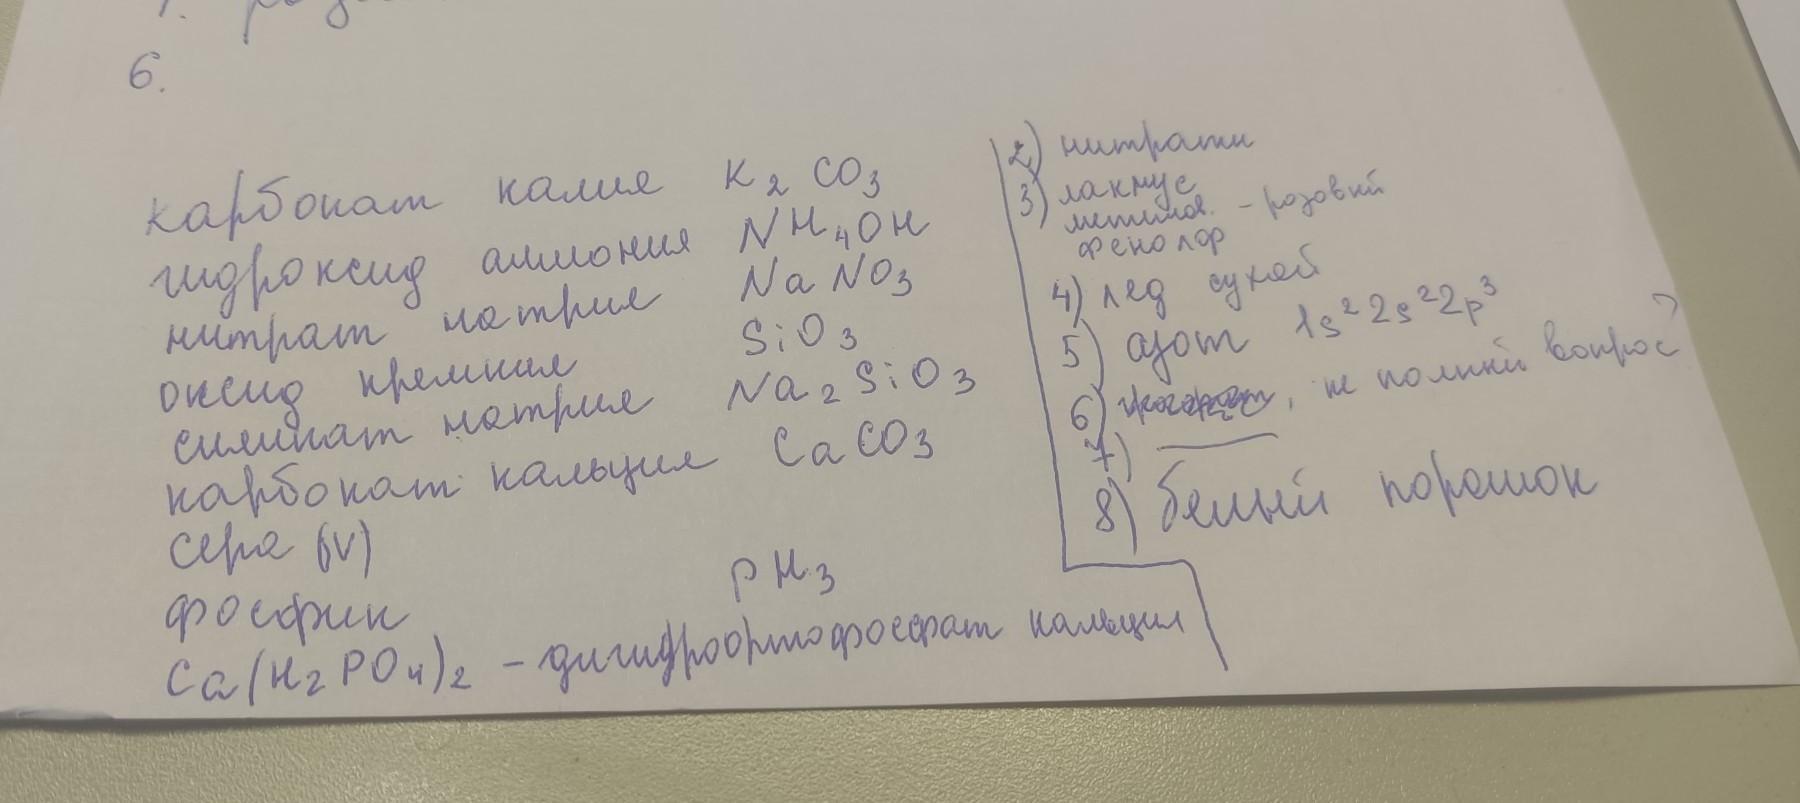 6.
карбонат калия K2CO3
гидроксид аммония NH4OH
нитрат натрия NaNO3
оксид кремния SiO3
силикат натрия Na2SiO3
карбонат кальция CaCO3
сера (IV)
фосфин PH3
Ca(H2PO4)2 - дигидроортофосфат кальция
2) нитраты
3) лакмус
метилов. - розовый
фенолф
4) лед сухой
5) азот 1s²2s²2p³
6) , не полный вопрос?
7) —
8) белый порошок